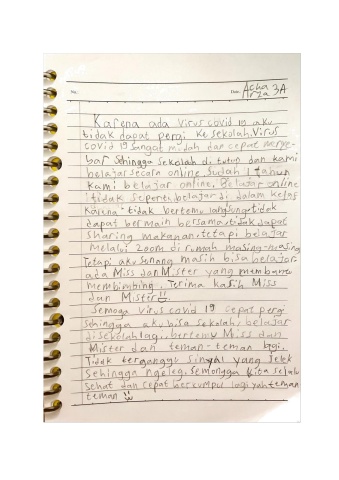 No.:
Date: Acha
Arza 3A
Karena ada Virus covid 19 aku
tidak dapat pergi ke sekolah. Virus
covid 19 sangat mudah dan cepat menye-
bar sehingga sekolah di tutup dan kami
belajar secara online. Sudah 1 tahun
kami belajar online. Belajar online
tidak seperti belajar di dalam kelas
Karena tidak bertemu langsung, tidak
dapat bermain bersama, tidak dapat
sharing makanan, tetapi belajar
melalui zoom di rumah masing-masing
Tetapi aku senang masih bisa belajar.
ada Miss dan Mister yang membantu
membimbing. Terima kasih Miss
dan Mister!!
Semoga virus covid 19 cepat pergi
sehingga aku bisa sekolah, belajar
disekolah lagi, bertemu Miss dan
Mister dan teman-teman lagi.
Tidak terganggu sinyal yang jelek
sehingga ngeleg. Semongga kita selalu
sehat dan cepat berkumpul lagi yah teman
teman